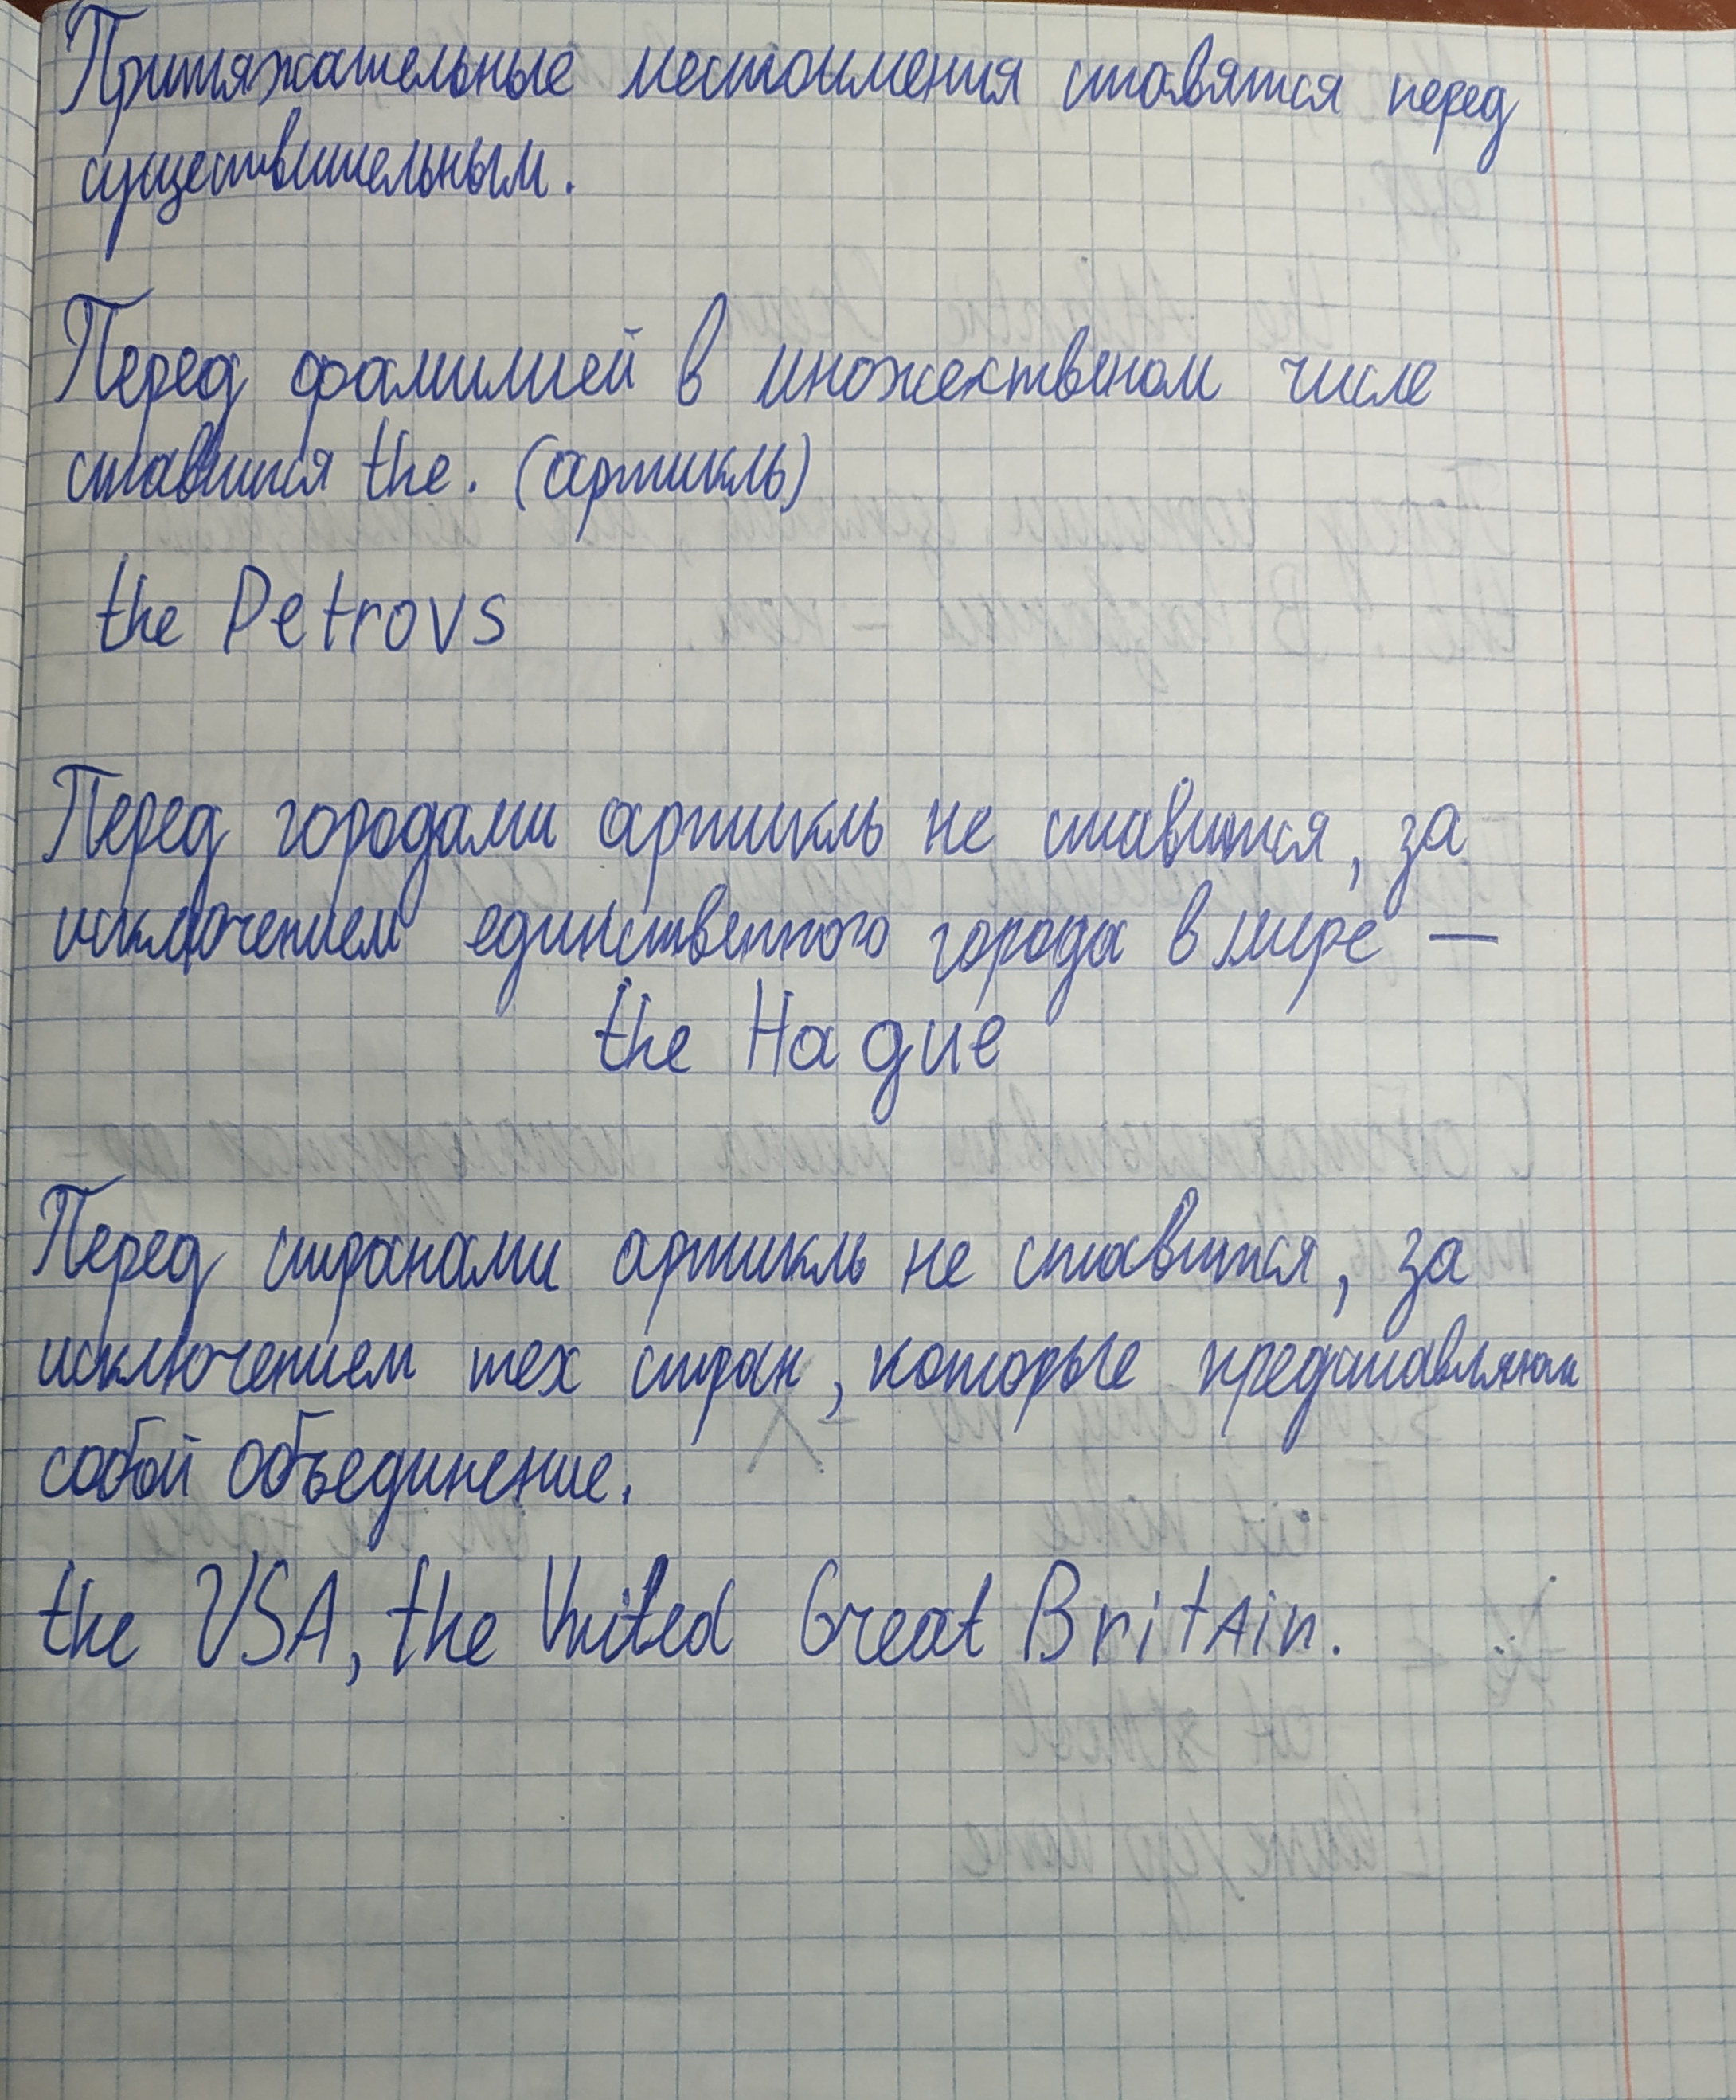 Притяжательные местоимения ставятся перед
существительным.
Перед фамилией в множественом числе
ставится the. (артикль)
the Petrovs
Перед городами артикль не ставится, за
исключением единственного города в мире —
the Hague
Перед странами артикль не ставится, за
исключением тех стран, которые представляют
собой объединение.
the USA, the United Great Britain.